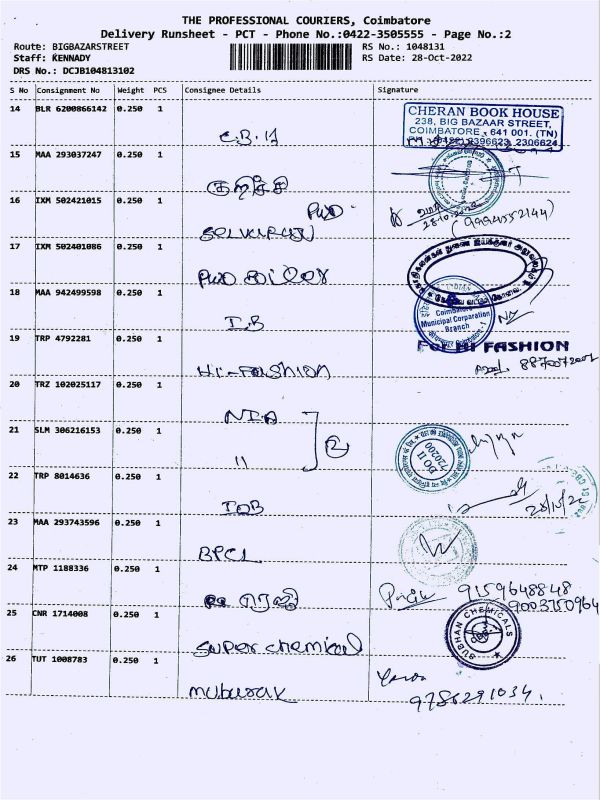 THE PROFESSIONAL COURIERS, Coimbatore
Delivery Runsheet - PCT - Phone No.:0422-3505555 - Page No.:2
Route: BIGBAZARSTREET
Staff: KENNADY
DRS No.: DCJB104813102
RS No.: 1048131
RS Date: 28-Oct-2022
S No Consignment No Weight PCS Consignee Details Signature
14 BLR 6200866142 0.250 1
CHERAN BOOK HOUSE
238, BIG BAZAAR STREET,
COIMBATORE - 641 001. (TN)
2396623, 2306624
15 MAA 293037247 0.250 1
குறிச்சி
16 IXM 502421015 0.250 1
PWD
selvaraj
28.10.22
(9994552144)
17 IXM 502401086 0.250 1
PWD
18 MAA 942499598 0.250 1
I.B
Coimbatore
Municipal Corporation
Branch
19 TRP 4792281 0.250 1
Hi-Fashion
For HI FASHION
20 TRZ 102025117 0.250 1
NIA
2
21 SLM 306216153 0.250 1
11
DO II
720200
22 TRP 8014636 0.250 1
IOB
23 MAA 293743596 0.250 1
BPCL
24 MTP 1188336 0.250 1
9159648848
9003750964
25 CNR 1714008 0.250 1
super chemical
SUBHAN CHEMICALS
26 TUT 1008783 0.250 1
mubarak
9786291034.